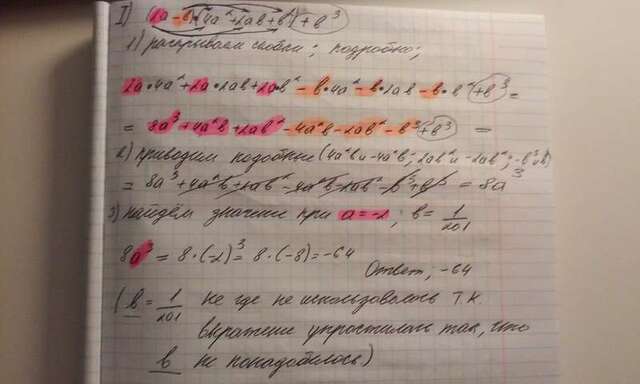 I) (2a-в)(4a²+2aв+в²)+в³
1) раскрываем скобки; подробно;
2a•4a²+2a•2aв+2a•в²-в•4a²-в•2aв-в•в²+в³=
=8a³+4a²в+2aв²-4a²в-2aв²-в³+в³ =
2) приводим подобные (4a²в и -4a²в; 2aв² и -2aв²; -в³ и в³)
=8a³+4a²в+2aв²-4a²в-2aв²-в³+в³=8a³
3) найдём значение при a=-2; в=1/201
8a³=8•(-2)³=8•(-8)=-64
Ответ; -64
(в=1/201 не где не использовалось т.к.
выражение упростилось так, что
в не понадобилось)